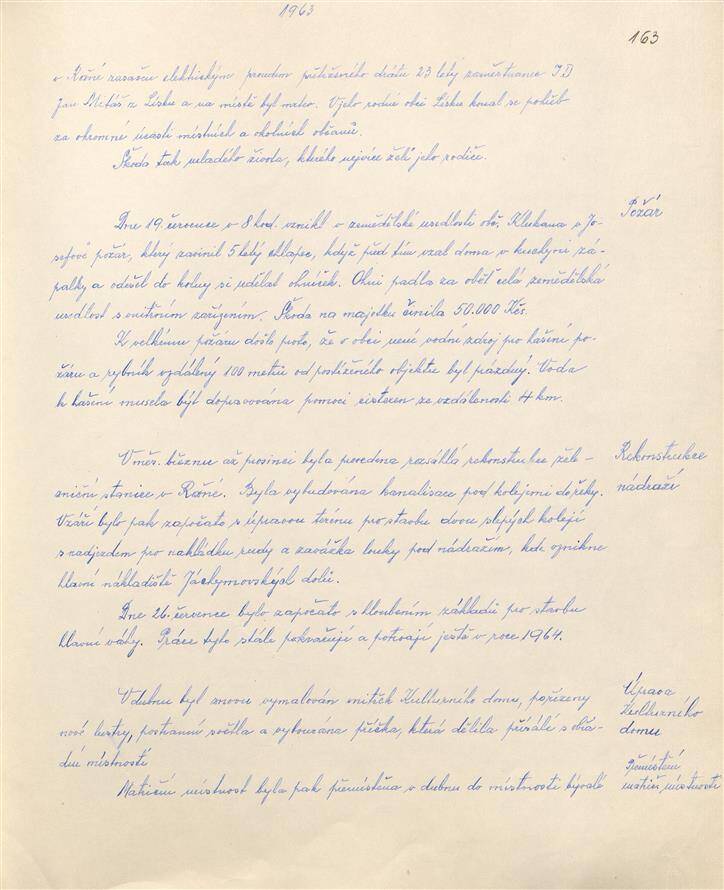 1963
163
v Rožné zasažen elektrickým proudem přetrženého drátu 23 letý zaměstnanec JD
Jan Mitáš z Lísku a na místě byl mrtev. V jeho rodné obci Lísku konal se pohřeb
za ohromné účasti místních a okolních občanů.
Škoda tak mladého života, kterého nejvíce želí jeho rodiče.
Požár
Dne 19. července v 8 hod. vznikl v zemědělské usedlosti obč. Klukana v Jo-
sefově požár, který zavinil 5 letý chlapec, když před tím vzal doma v kuchyni zá-
palky a odešel do kolny si udělat ohníček. Ohni padla za oběť celá zemědělská
usedlost s vnitřním zařízením. Škoda na majetku činila 50.000 Kčs.
K velkému požáru došlo proto, že v obci není vodní zdroj pro hašení po-
žáru a rybník vzdálený 100 metrů od postiženého objektu byl prázdný. Voda
k hašení musela být dopravována pomocí cisteren ze vzdálenosti 4 km.
Rekonstrukce
nádraží
V měs. březnu až prosinci byla provedena rozsáhlá rekonstrukce žele-
zniční stanice v Rožné. Byla vybudována kanalisace pod kolejemi do řeky.
V září bylo pak započato s úpravou terénu pro stavbu dvou slepých kolejí
s nadjezdem pro nakládku rudy a zavážka louky pod nádražím, kde vznikne
hlavní nákladiště Jáchymovských dolů.
Dne 26. července bylo započato s hloubením základů pro stavbu
hlavní váhy. Práce tyto stále pokračují a potrvají ještě v roce 1964.
Úprava
Kulturného
domu
V dubnu byl znovu vymalován vnitřek Kulturního domu, pořízeny
nové lustry, postranní světla a vybourána příčka, která dělila přísálí s obřa-
dní místností
Přemístění
matrič. místnosti
Matriční místnost byla pak přemístěna v dubnu do místnosti bývalé